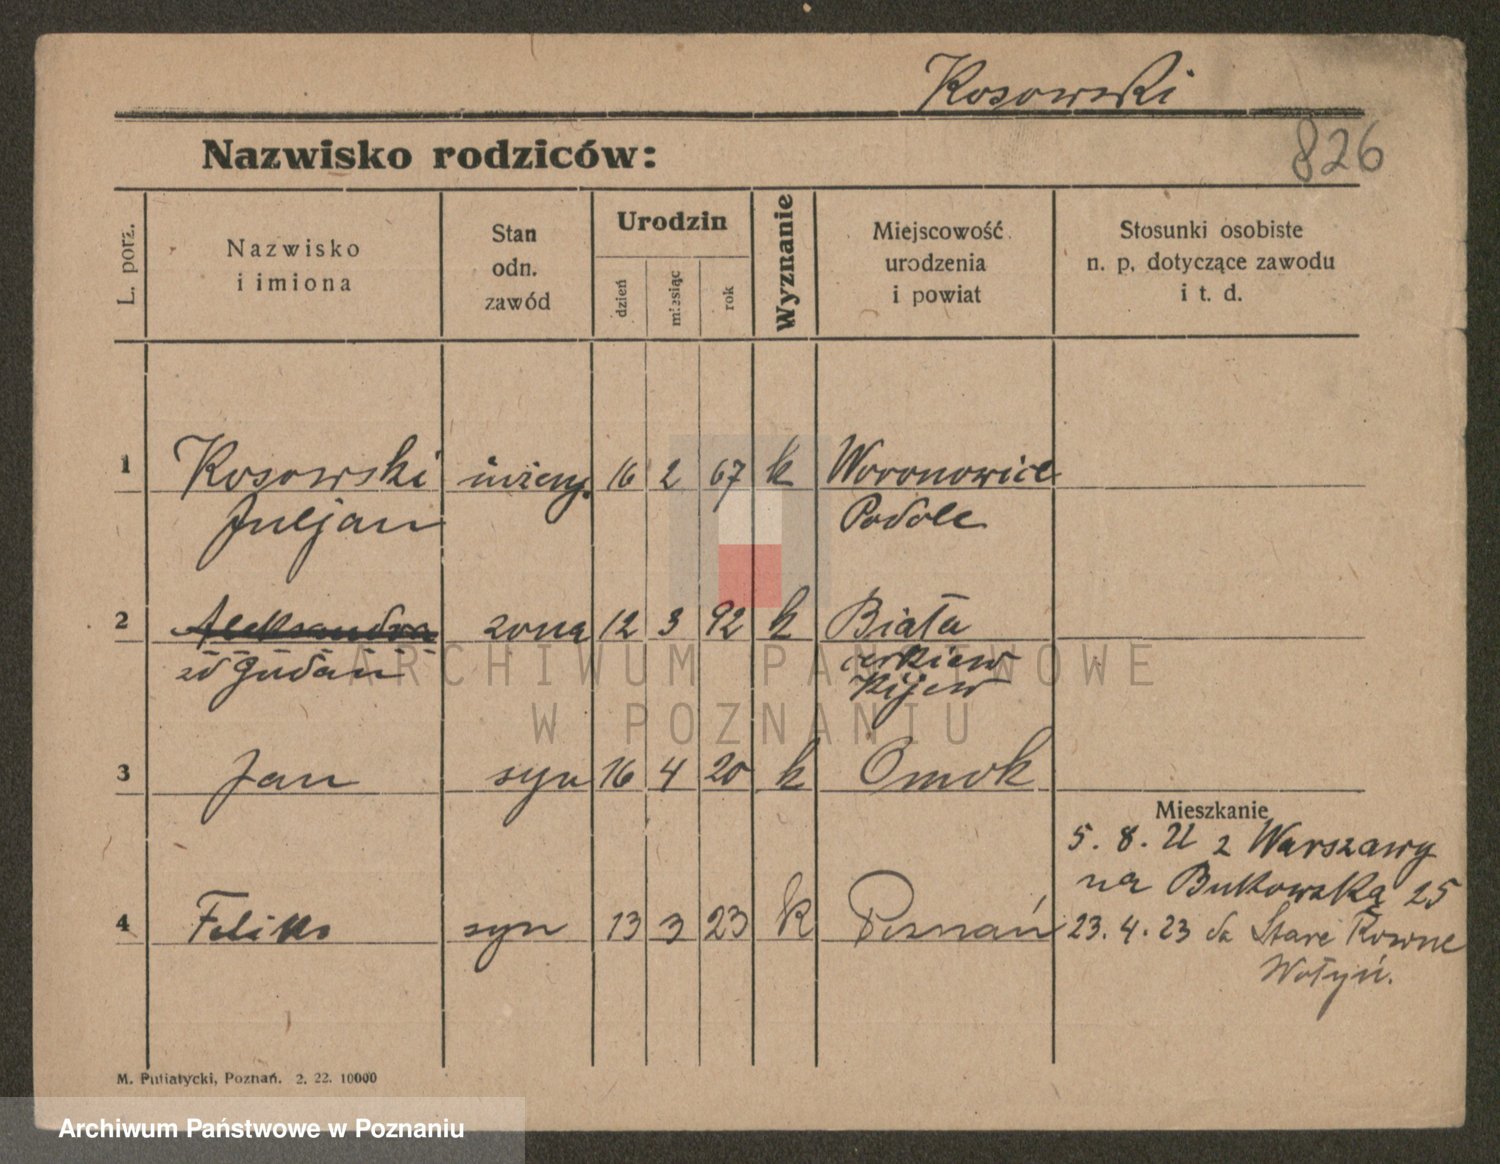 Kosowski
Nazwisko rodziców:
826
L. porz.
Nazwisko
i imiona
Stan
odn.
zawód
Urodzin
dzień
miesiąc
rok
Wyznanie
Miejscowość
urodzenia
i powiat
Stosunki osobiste
n. p. dotyczące zawodu
i t. d.
1 Kosowski inżeny. 16 2 67 k Woronowice
Juljan Podole
2 Aleksandra zona 12 3 92 k Biała
zd Gudan cerkiew
Kijew
ARCHIWUM PAŃSTWOWE
W POZNANIU
3 Jan syn 16 4 20 k Omsk
Mieszkanie
5. 8. 21 z Warszawy
na Bukowską 25
4 Feliks syn 13 3 23 k Poznań 23. 4. 23 do Stare Rowne
Wołyń.
M. Putiatycki, Poznań. 2. 22. 10000
Archiwum Państwowe w Poznaniu